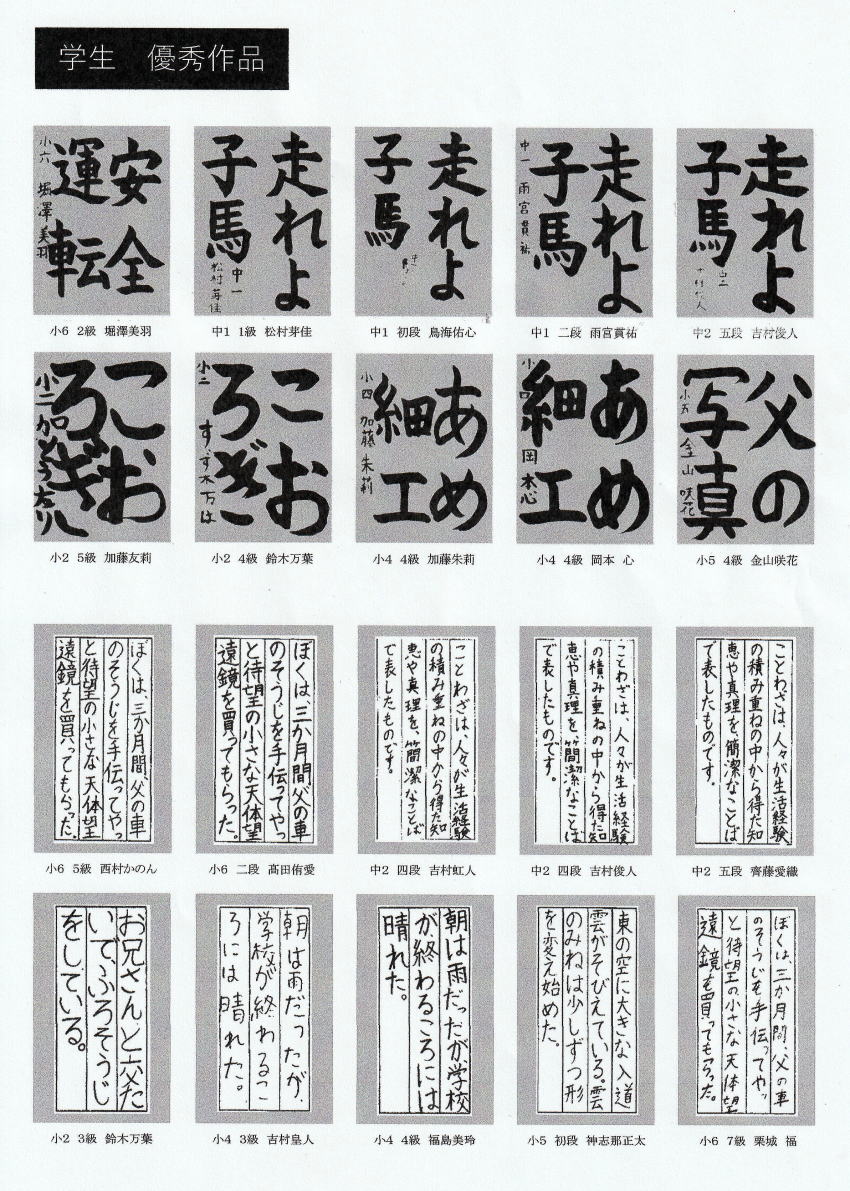 学生　優秀作品
安全
運転
小六 堀澤美羽
小6 2級 堀澤美羽
走れよ
子馬
中一 松村芽佳
中1 1級 松村芽佳
走れよ
子馬
中1 初段 鳥海佑心
走れよ
子馬
中一 雨宮貫祐
中1 二段 雨宮貫祐
走れよ
子馬
中2 五段 吉村俊人
こお
ろぎ
小二 加とう友り
小2 5級 加藤友莉
こお
ろぎ
小二 すず木万は
小2 4級 鈴木万葉
あめ
細工
小四 加藤朱莉
小4 4級 加藤朱莉
あめ
細工
小四 岡本心
小4 4級 岡本 心
父の
写真
小五 金山咲花
小5 4級 金山咲花
ぼくは、三か月間、父の車
のそうじを手伝ってやっ
と待望の小さな天体望
遠鏡を買ってもらった。
小6 5級 西村かのん
ぼくは、三か月間父の車
のそうじを手伝ってやっ
と待望の小さな天体望
遠鏡を買ってもらった。
小6 二段 髙田侑愛
ことわざは、人々が生活経験
の積み重ねの中から得た知
恵や真理を、簡潔なことば
で表したものです。
中2 四段 吉村虹人
ことわざは、人々が生活経験
の積み重ねの中から得た知
恵や真理を、簡潔なことば
で表したものです。
中2 四段 吉村俊人
ことわざは、人々が生活経験
の積み重ねの中から得た知
恵や真理を、簡潔なことば
で表したものです。
中2 五段 齊藤愛織
お兄さんと交た
いで、ふろそうじ
をしている。
小2 3級 鈴木万葉
朝は雨だったが、
学校が終わるこ
ろには晴れた。
小4 3級 吉村皇人
朝は雨だったが、学校
が終わるころには
晴れた。
小4 4級 福島美玲
東の空に大きな入道
雲がそびえている。雲
のみねは少しずつ形
を変え始めた。
小5 初段 神志那正太
ぼくは、三か月間、父の車
のそうじを手伝ってやっ
と待望の小さな天体望
遠鏡を買ってもらった。
小6 7級 栗城 福